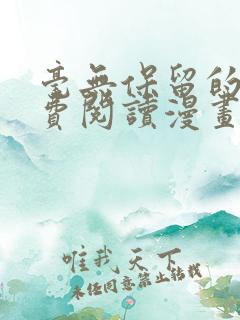 毫無保留的
費閱讀漫畫
唯我天下
未任同意禁止轉載